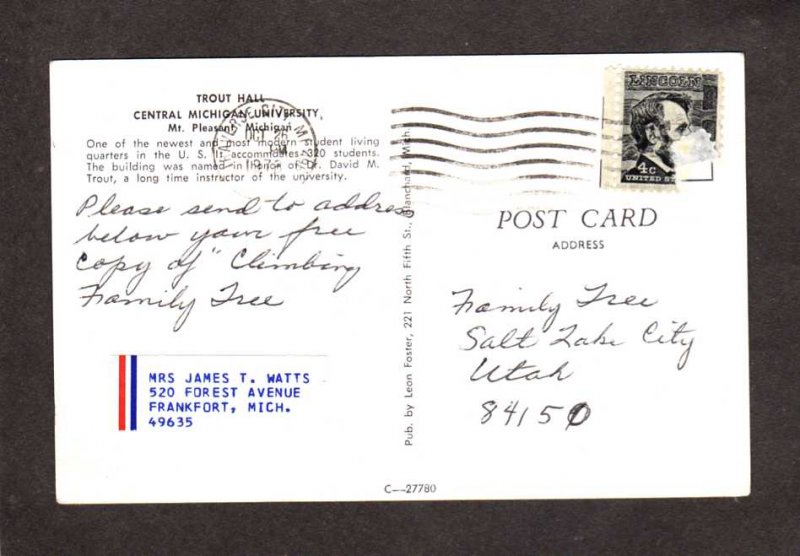 TROUT HALL
CENTRAL MICHIGAN UNIVERSITY,
Mt. Pleasant, Michigan
One of the newest and most modern student living
quarters in the U. S. It accommdates 320 students.
The building was named in honor of Dr. David M.
Trout, a long time instructor of the university.
OCT 26
PM
Please send to address
below your free
copy of "Climbing
Family Tree
MRS JAMES T. WATTS
520 FOREST AVENUE
FRANKFORT, MICH.
49635
Pub. by Leon Foster, 221 North Fifth St., Blanchard, Mich.
C—27780
LINCOLN
4c
UNITED ST
POST CARD
ADDRESS
Family Tree
Salt Lake City
Utah
84150